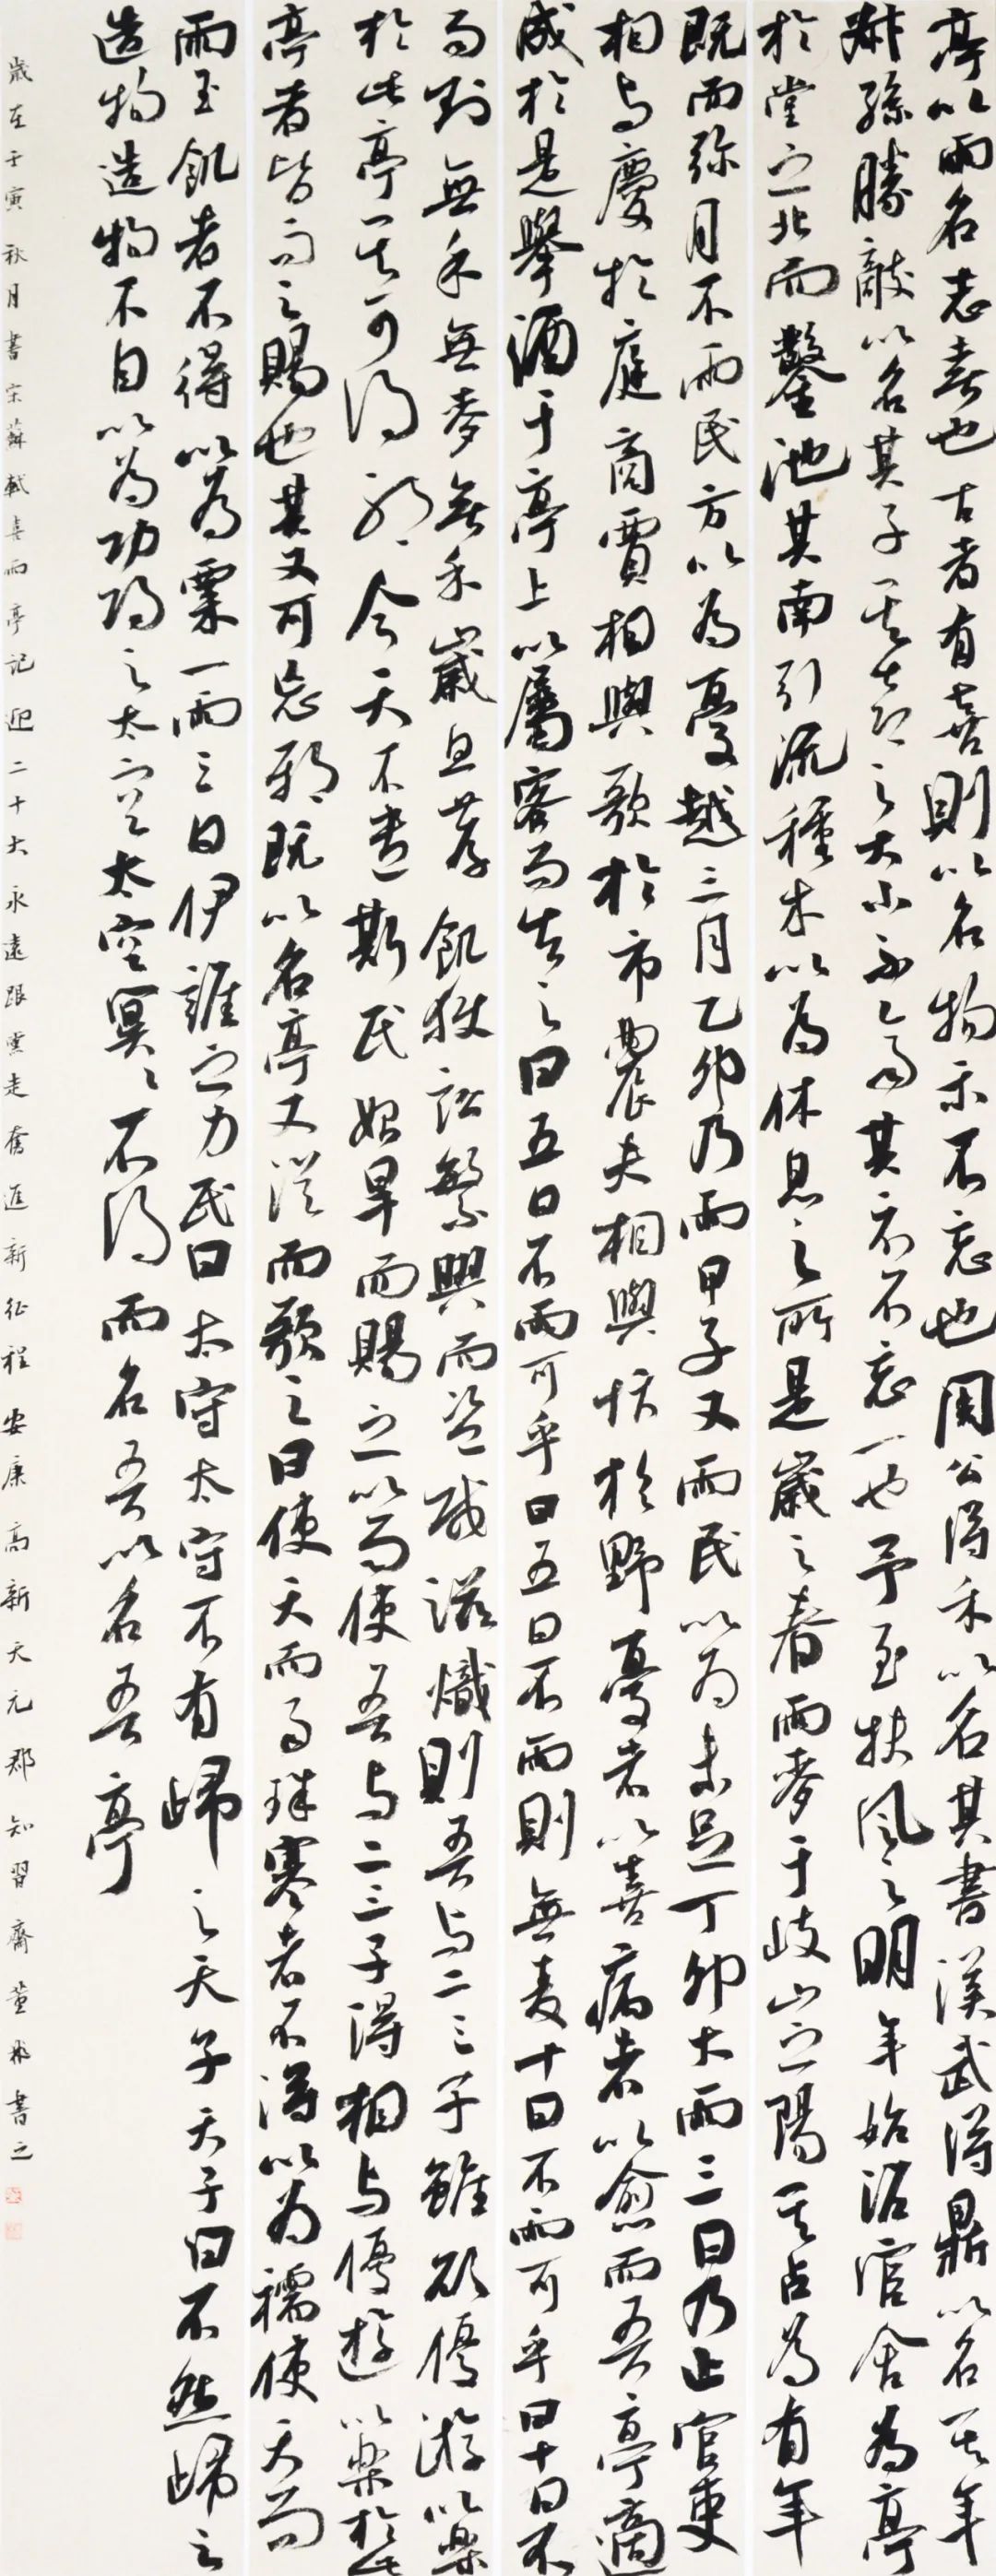 亭以雨名志喜也古者有喜則以名物示不忘也周公得禾以名其書漢武得鼎以名其年
叔孫勝敵以名其子其喜之大小不齊其示不忘一也予至扶風之明年始治官舍為亭
於堂之北而鑿池其南引流種木以為休息之所是歲之春雨麥于岐山之陽其占為有年
既而彌月不雨民方以為憂越三月乙卯乃雨甲子又雨民以為未足丁卯大雨三日乃止官吏
相与慶於庭商賈相與歌於市農夫相與忭於野憂者以喜病者以愈而吾亭適
成於是舉酒于亭上以屬客而告之曰五日不雨可乎曰五日不雨則無麦十日不雨可乎曰十日不
雨則無禾無麥無禾歲且荐飢獄訟繁興而盜賊滋熾則吾与二三子雖欲優游以樂
於此亭其可得耶今天不遺斯民始旱而賜之以雨使吾与二三子得相与優遊以樂於此
亭者皆雨之賜也其又可忘耶既以名亭又從而歌之曰使天而雨珠寒者不得以為襦使天而
雨玉飢者不得以為粟一雨三日伊誰之力民曰太守太守不有歸之天子天子曰不然歸之
造物造物不自以為功歸之太空太空冥冥不得而名吾以名吾亭
歲在壬寅秋月書宋蘇軾喜雨亭記迎二十大永遠跟黨走奮進新征程安康高新天元郡知習齋董彬書之